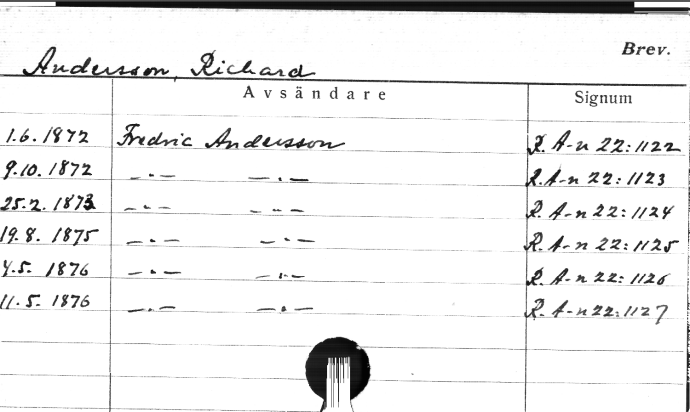 Brev.
Andersson, Richard
Avsändare Signum
1.6. 1872 Fredric Andersson R. A-n 22:1122
9.10. 1872 — " — — " — R. A-n 22:1123
25.2. 1873 — " — — " — R. A-n 22:1124
19.8. 1875 — " — — " — R. A-n 22:1125
4.5. 1876 — " — — " — R. A-n 22:1126
11.5. 1876 — " — — " — R. A-n 22:1127